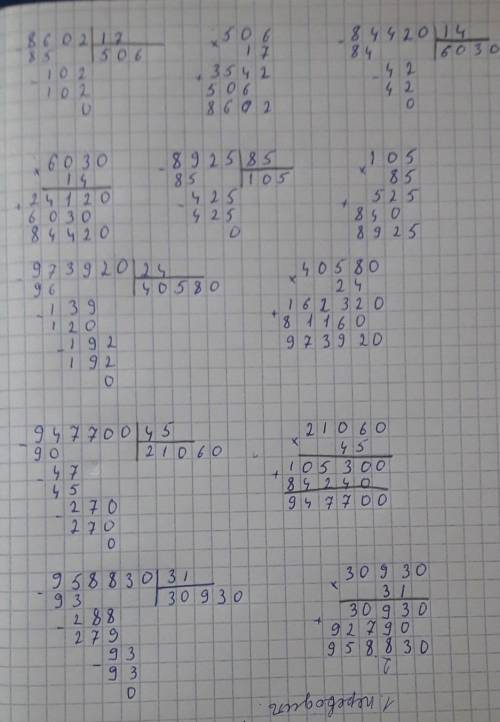 - 8602 | 12
85 | 506
- 102
102
0
× 506
17
+ 3542
506
8602
- 84420 | 14
84 | 6030
- 42
42
0
× 6030
14
+ 24120
6030
84420
- 8925 | 85
85 | 105
- 425
425
0
× 105
85
+ 525
840
8925
- 973920 | 24
96 | 40580
- 139
120
- 192
192
0
× 40580
24
+ 162320
81160
973920
- 947700 | 45
90 | 21060
- 47
45
- 270
270
0
× 21060
45
+ 105300
84240
947700
- 958830 | 31
93 | 30930
- 288
279
- 93
93
0
× 30930
31
+ 30930
92790
958830
1 переводит.